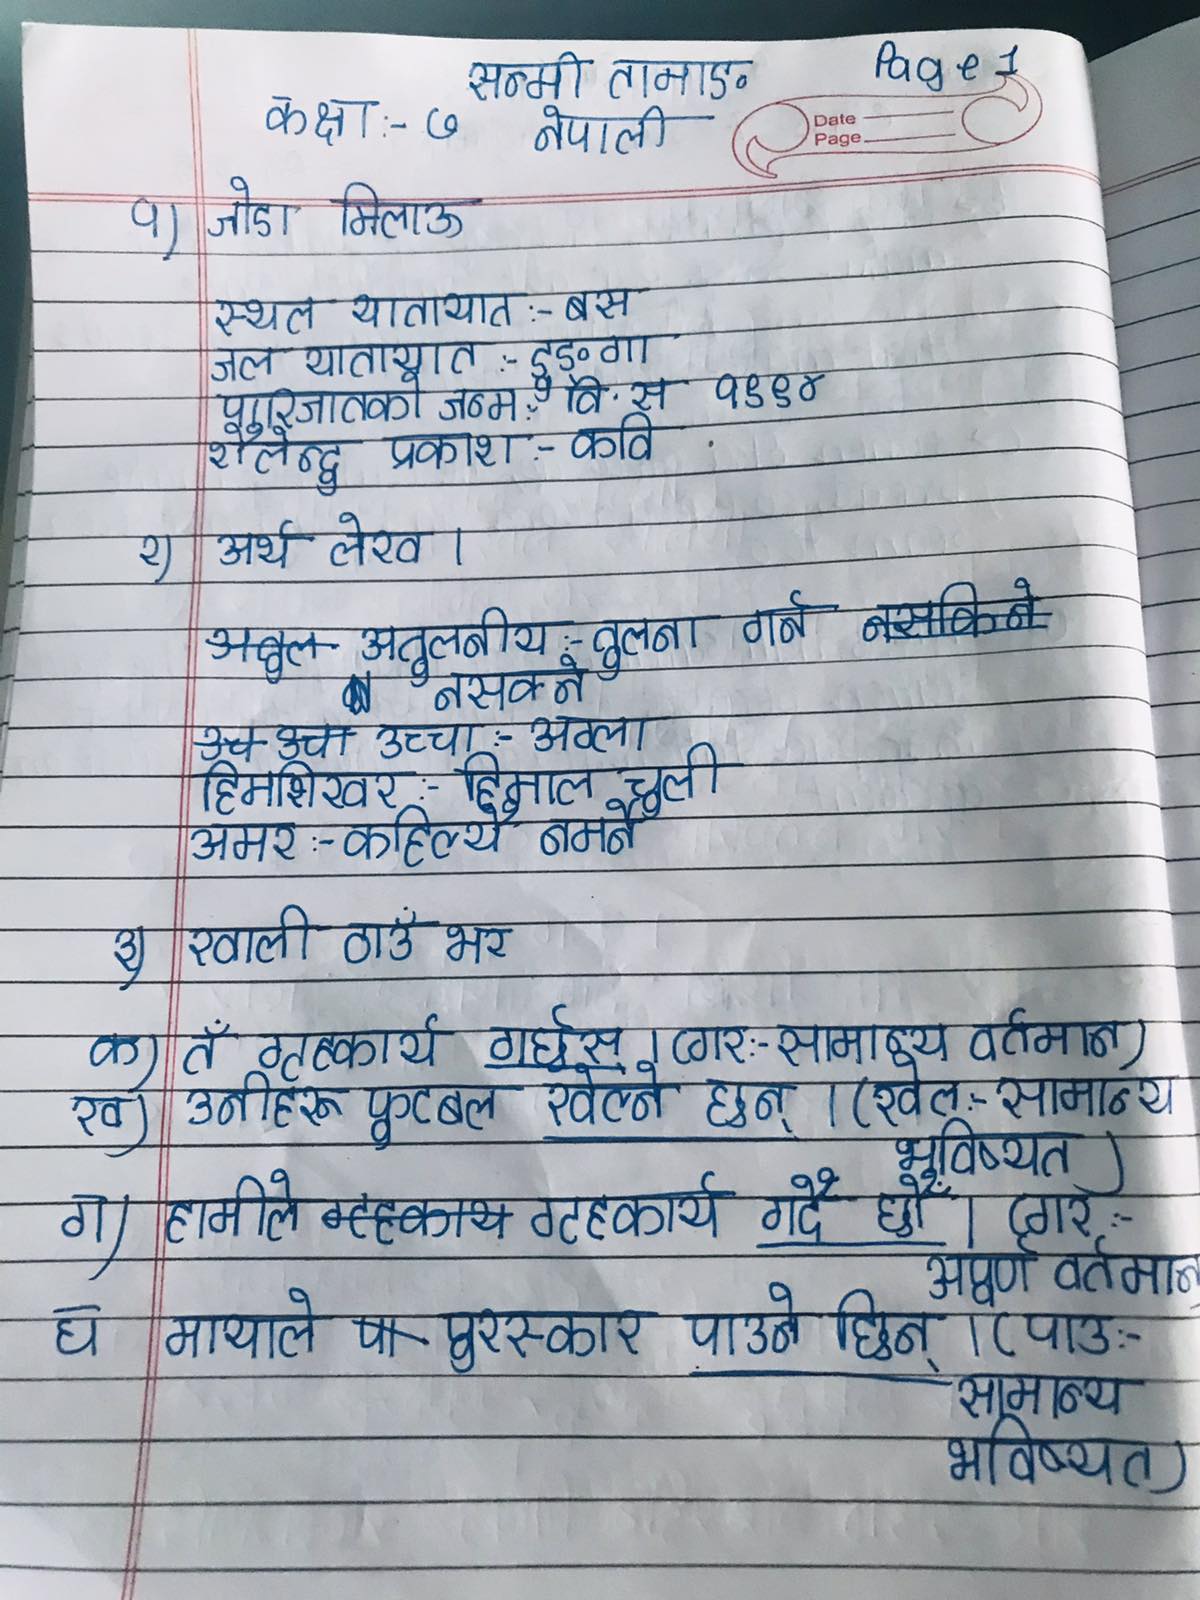 सन्मी तामाङ
Page 1
कक्षा :- ७ नेपाली
Date
Page
१) जोडा मिलाऊ
स्थल यातायात :- बस
जल यातायात :- डुङ्गा
पारिजातको जन्म :- वि.स १९९४
शैलेन्द्र प्रकाश :- कवि
२) अर्थ लेख ।
अतुल अतुलनीय :- तुलना गर्न नसकिने
नसक्ने
उच उचा उच्चा :- अग्ला
हिमशिखर :- हिमाल चुली
अमर :- कहिल्यै नमर्ने
३) खाली ठाउँ भर
क) तँ गृहकार्य गर्छस् । (गर :- सामान्य वर्तमान)
ख) उनीहरू फुटबल खेल्ने छन् । (खेल :- सामान्य
भविष्यत)
ग) हामीले गृहकार्य गर्दै छौँ । (गर :-
अपूर्ण वर्तमान
घ मायाले पा पुरस्कार पाउने छिन् । (पाउ :-
सामान्य
भविष्यत)